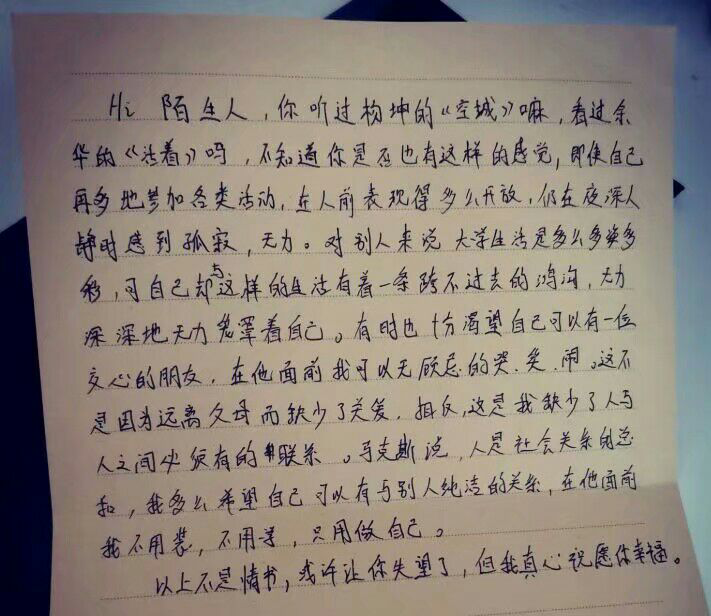 Hi 陌生人，你听过杨坤的《空城》嘛，看过余
华的《活着》吗，不知道你是否也有这样的感觉，即使自己
再多地参加各类活动，在人前表现得多么开放，仍在夜深人
静时感到孤寂，无力。对别人来说大学生活是多么多姿多
彩，可自己却与这样的生活有着一条跨不过去的鸿沟，无力
深深地无力笼罩着自己。有时也十分渴望自己可以有一位
交心的朋友，在他面前我可以无顾忌的哭、笑、闹。这不
是因为远离父母而缺少了关爱，相反，这是我缺少了人与
人之间必须有的联系。马克斯说，人是社会关系的总
和，我多么希望自己可以有与别人纯洁的关系，在他面前
我不用装，不用等，只用做自己。
以上不是情书，或许让你失望了，但我真心祝愿你幸福。